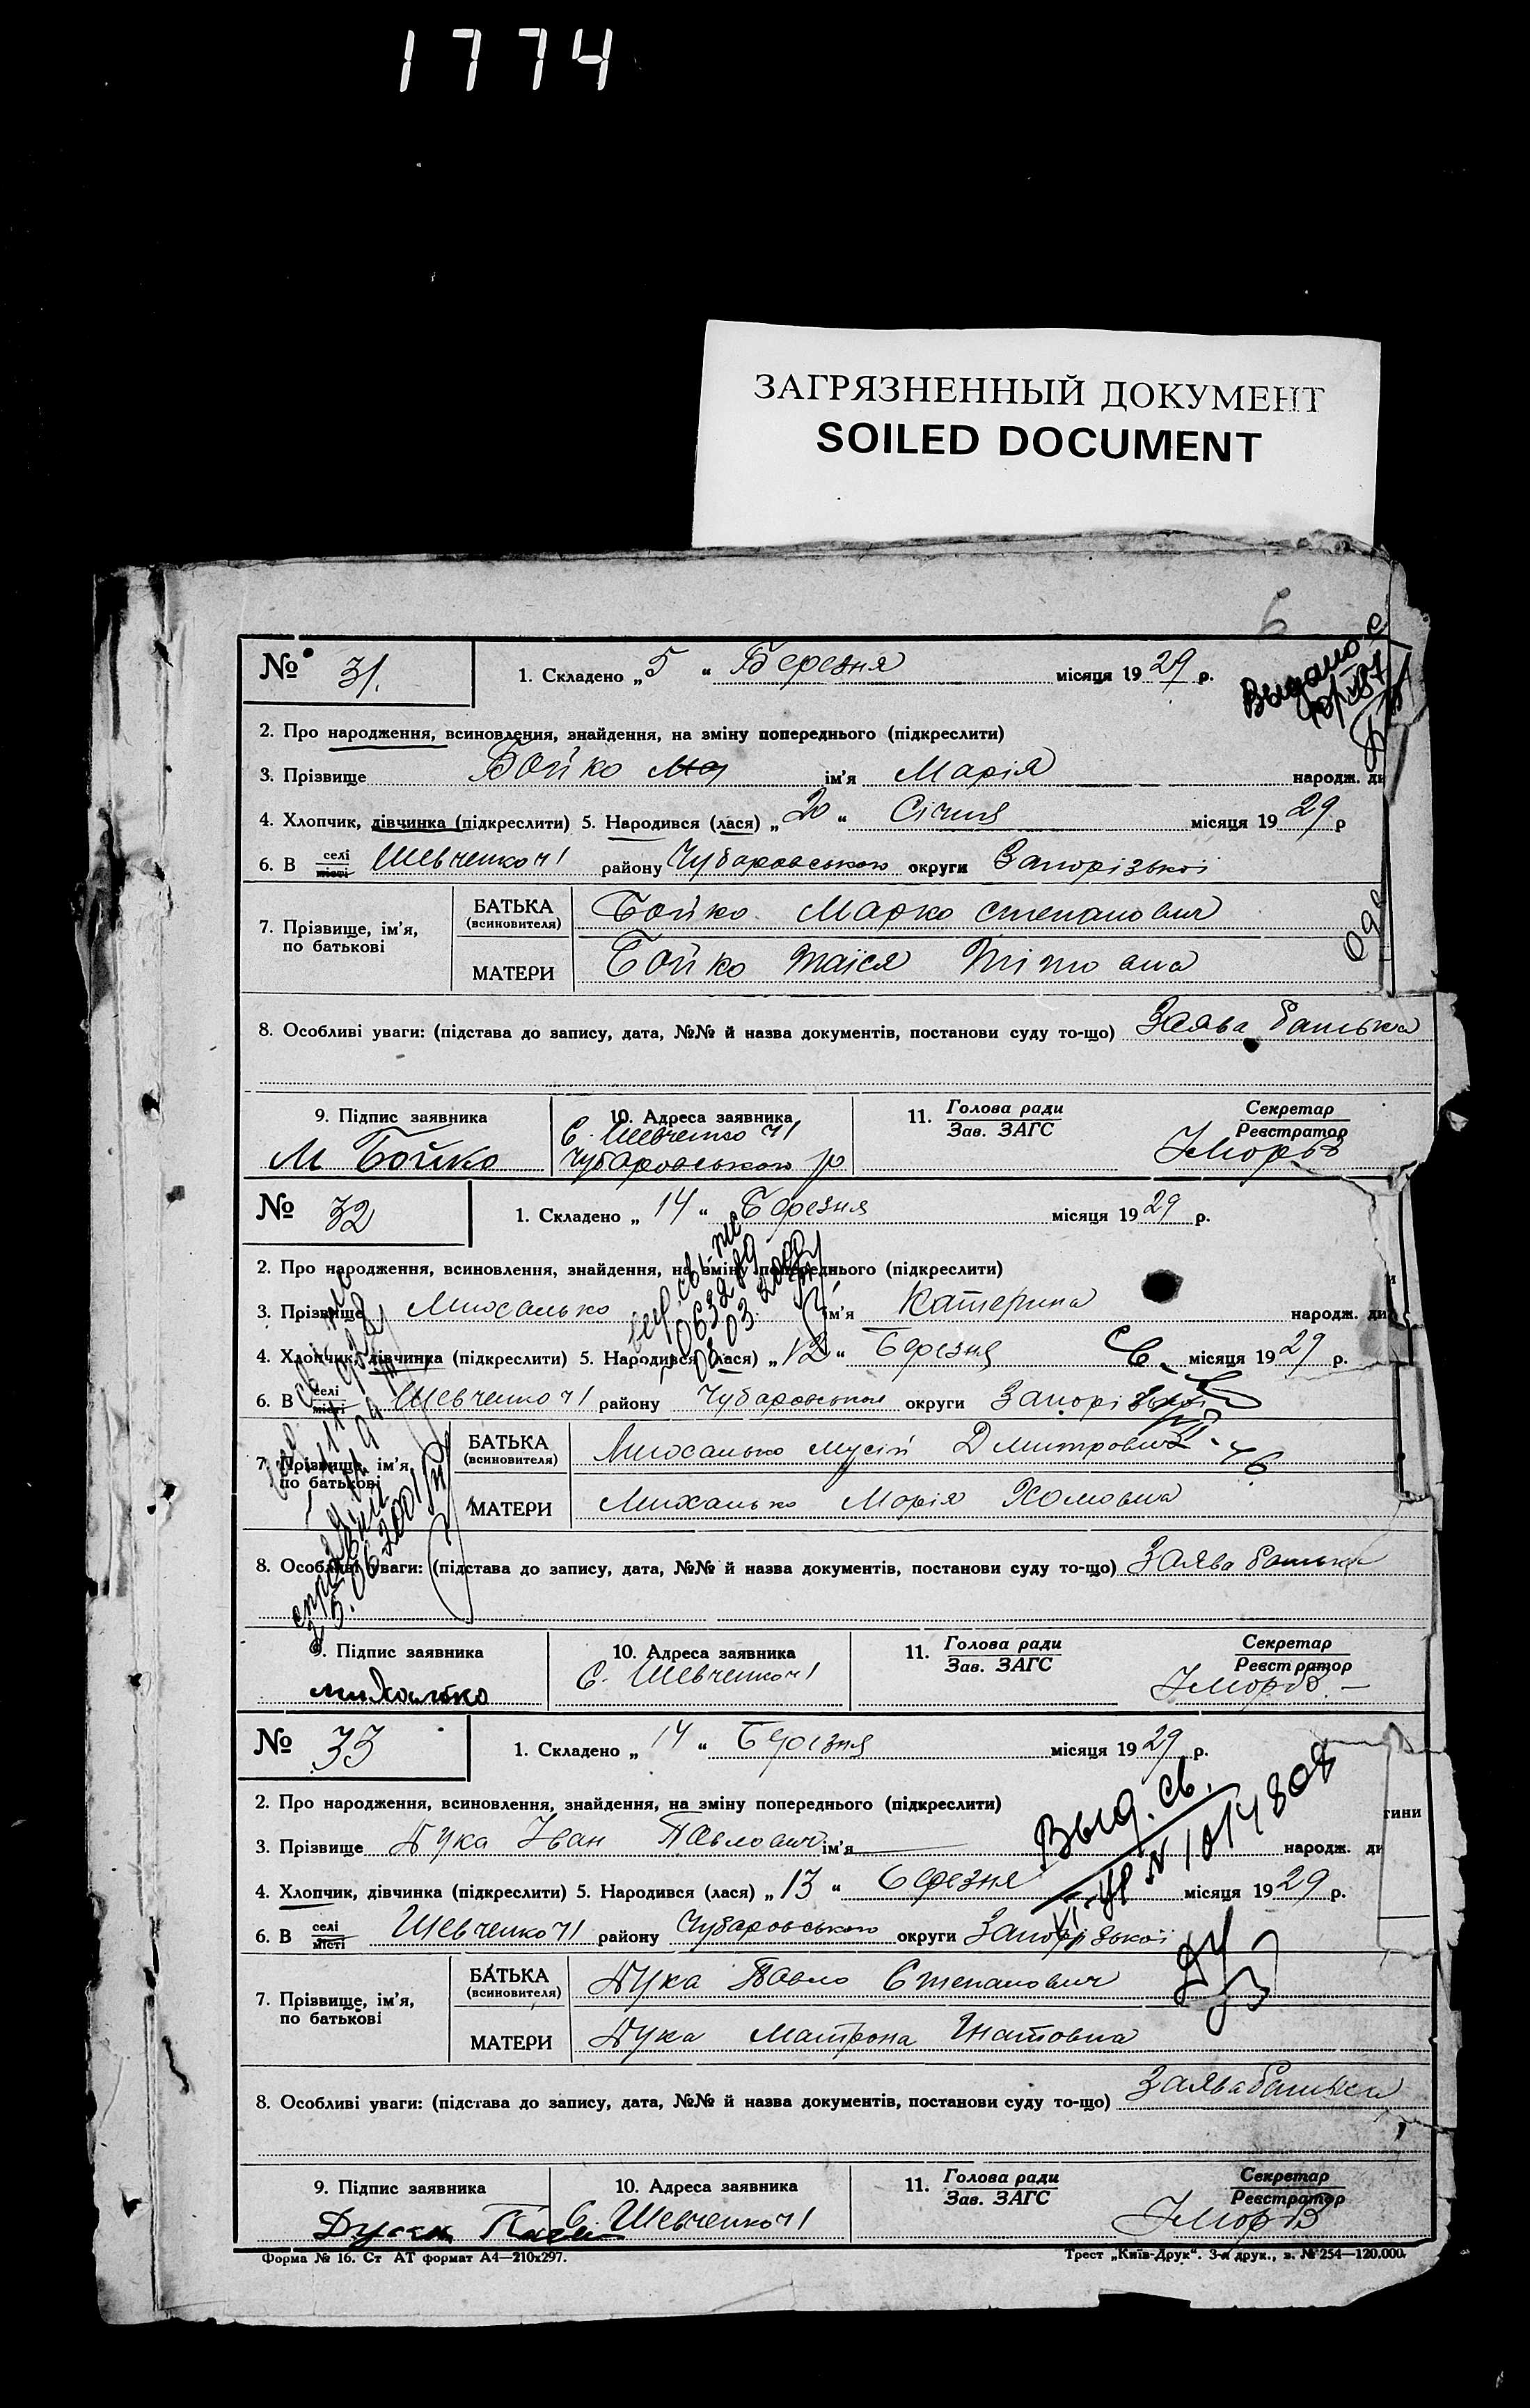 1774
ЗАГРЯЗНЕННЫЙ ДОКУМЕНТ
SOILED DOCUMENT
6
№ 31. 1. Складено „5“ Березня місяця 1929 р.
Выдано
2. Про народження, всиновлення, знайдення, на зміну попереднього (підкреслити)
3. Прізвище Бойко Ма ім’я Марія народж. ди
4. Хлопчик, дівчинка (підкреслити) 5. Народився (лася) „20“ Січня місяця 1929 р
6. В селі місті Шевченко ч1 району Чубаровського округи Запорізької
7. Прізвище, ім’я, по батькові
БАТЬКА (всиновителя) Бойко Марко степанович
МАТЕРИ Бойко Таїся
8. Особливі уваги: (підстава до запису, дата, №№ й назва документів, постанови суду то-що) Заява батька
9. Підпис заявника 10. Адреса заявника 11. Голова ради Зав. ЗАГС Секретар Реєстратор
М Бойко С. Шевченко ч1
Чубаровського р
№ 32 1. Складено „14“ Березня місяця 1929 р.
2. Про народження, всиновлення, знайдення, на зміну попереднього (підкреслити)
3. Прізвище Михалько ім’я Катерина народж. ди
4. Хлопчик, дівчинка (підкреслити) 5. Народився (лася) „12“ Березня місяця 1929 р.
6. В селі місті Шевченко ч1 району Чубаровського округи Запорізької
7. Прізвище, ім’я, по батькові
БАТЬКА (всиновителя) Михалько мусій Дмитрович
МАТЕРИ Михалько Марія Хомовна
8. Особливі уваги: (підстава до запису, дата, №№ й назва документів, постанови суду то-що) Заява батька
9. Підпис заявника 10. Адреса заявника 11. Голова ради Зав. ЗАГС Секретар Реєстратор
михалько С. Шевченко ч1
№ 33 1. Складено „14“ Березня місяця 1929 р.
2. Про народження, всиновлення, знайдення, на зміну попереднього (підкреслити)
Выд. св.
3. Прізвище Дука Іван Павлович ім’я народж. ди
тини
4. Хлопчик, дівчинка (підкреслити) 5. Народився (лася) „13“ березня місяця 1929 р.
6. В селі місті Шевченко ч1 району Чубаровського округи Запорізької
7. Прізвище, ім’я, по батькові
БАТЬКА (всиновителя) Дука Павло Степанович
МАТЕРИ Дука Матрона Гнатовна
8. Особливі уваги: (підстава до запису, дата, №№ й назва документів, постанови суду то-що) Заява батька
9. Підпис заявника 10. Адреса заявника 11. Голова ради Зав. ЗАГС Секретар Реєстратор
С. Шевченко ч1
Форма № 16. Ст АТ формат А4—210х297. Трест „Київ-Друк“. 3-я друк., з. № 254—120.000.